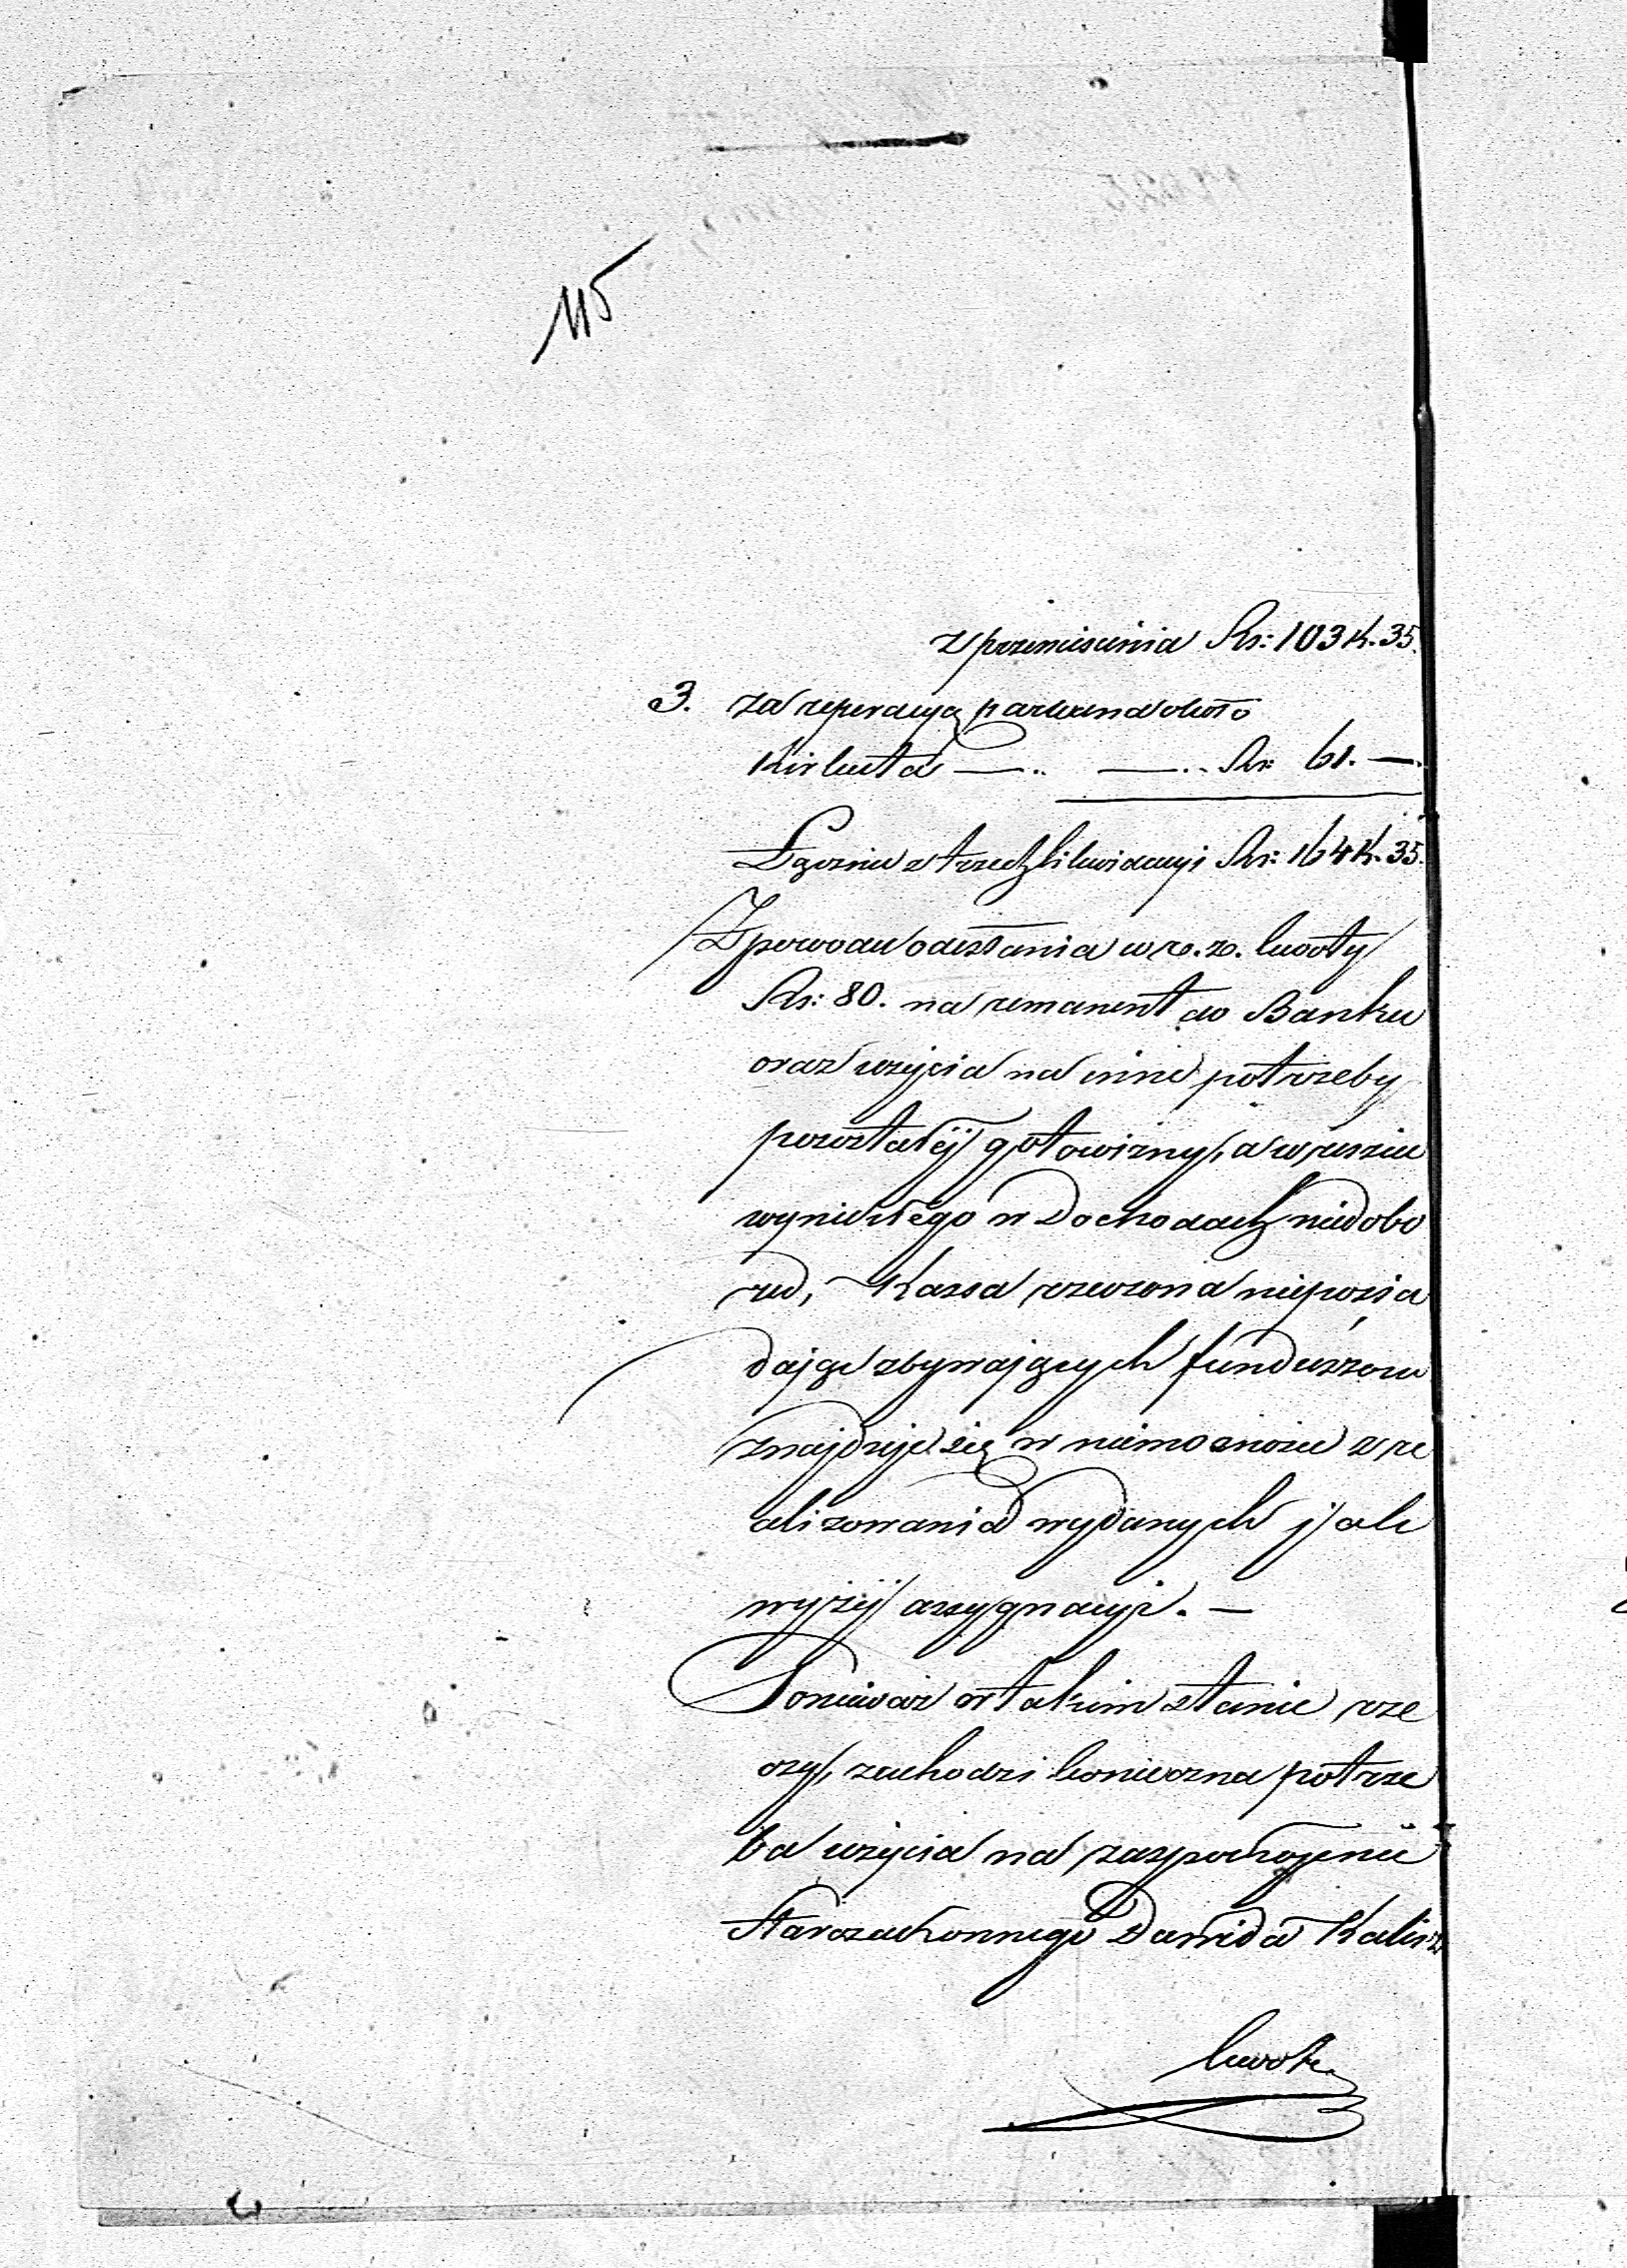 115
z przeniesienia Rs: 103 K. 35.
3. za reperacyą parkana około
Kirkuta —.. —.. Rs: 61. —.
Łącznie z trzech likwidacyi Rs: 164 K. 35.
Z powodu odesłania w r. z. kwoty
Rs: 80. na remanent do Banku
oraz użycia na inne potrzeby
pozostałej gotowizny, a w reszcie
wynikłego w Dochodach niedobo
ru, Kassa rzeczona nieposia
dając zbywających funduszow
znajduje się w niemożności z re
alizowania wydanych jak
wyżej assygnacyi. —
Ponieważ w takim stanie rze
czy, zachodzi konieczna potrze
ba użycia na zaspokojenie
Starozakonnego Dawida Kalisz
kwotę